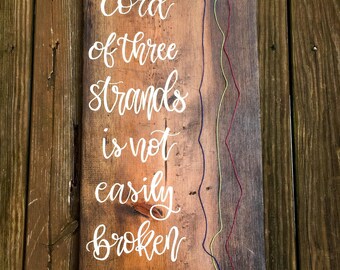 Cord
of three
strands
is not
easily
broken